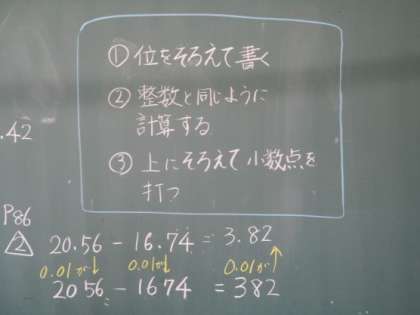 ① 位をそろえて書く
② 整数と同じように
計算する
③ 上にそろえて小数点を
打つ
.42
P86
2 20.56 - 16.74 = 3.82
0.01が↓ 0.01が↓ 0.01が↑
2056 - 1674 = 382